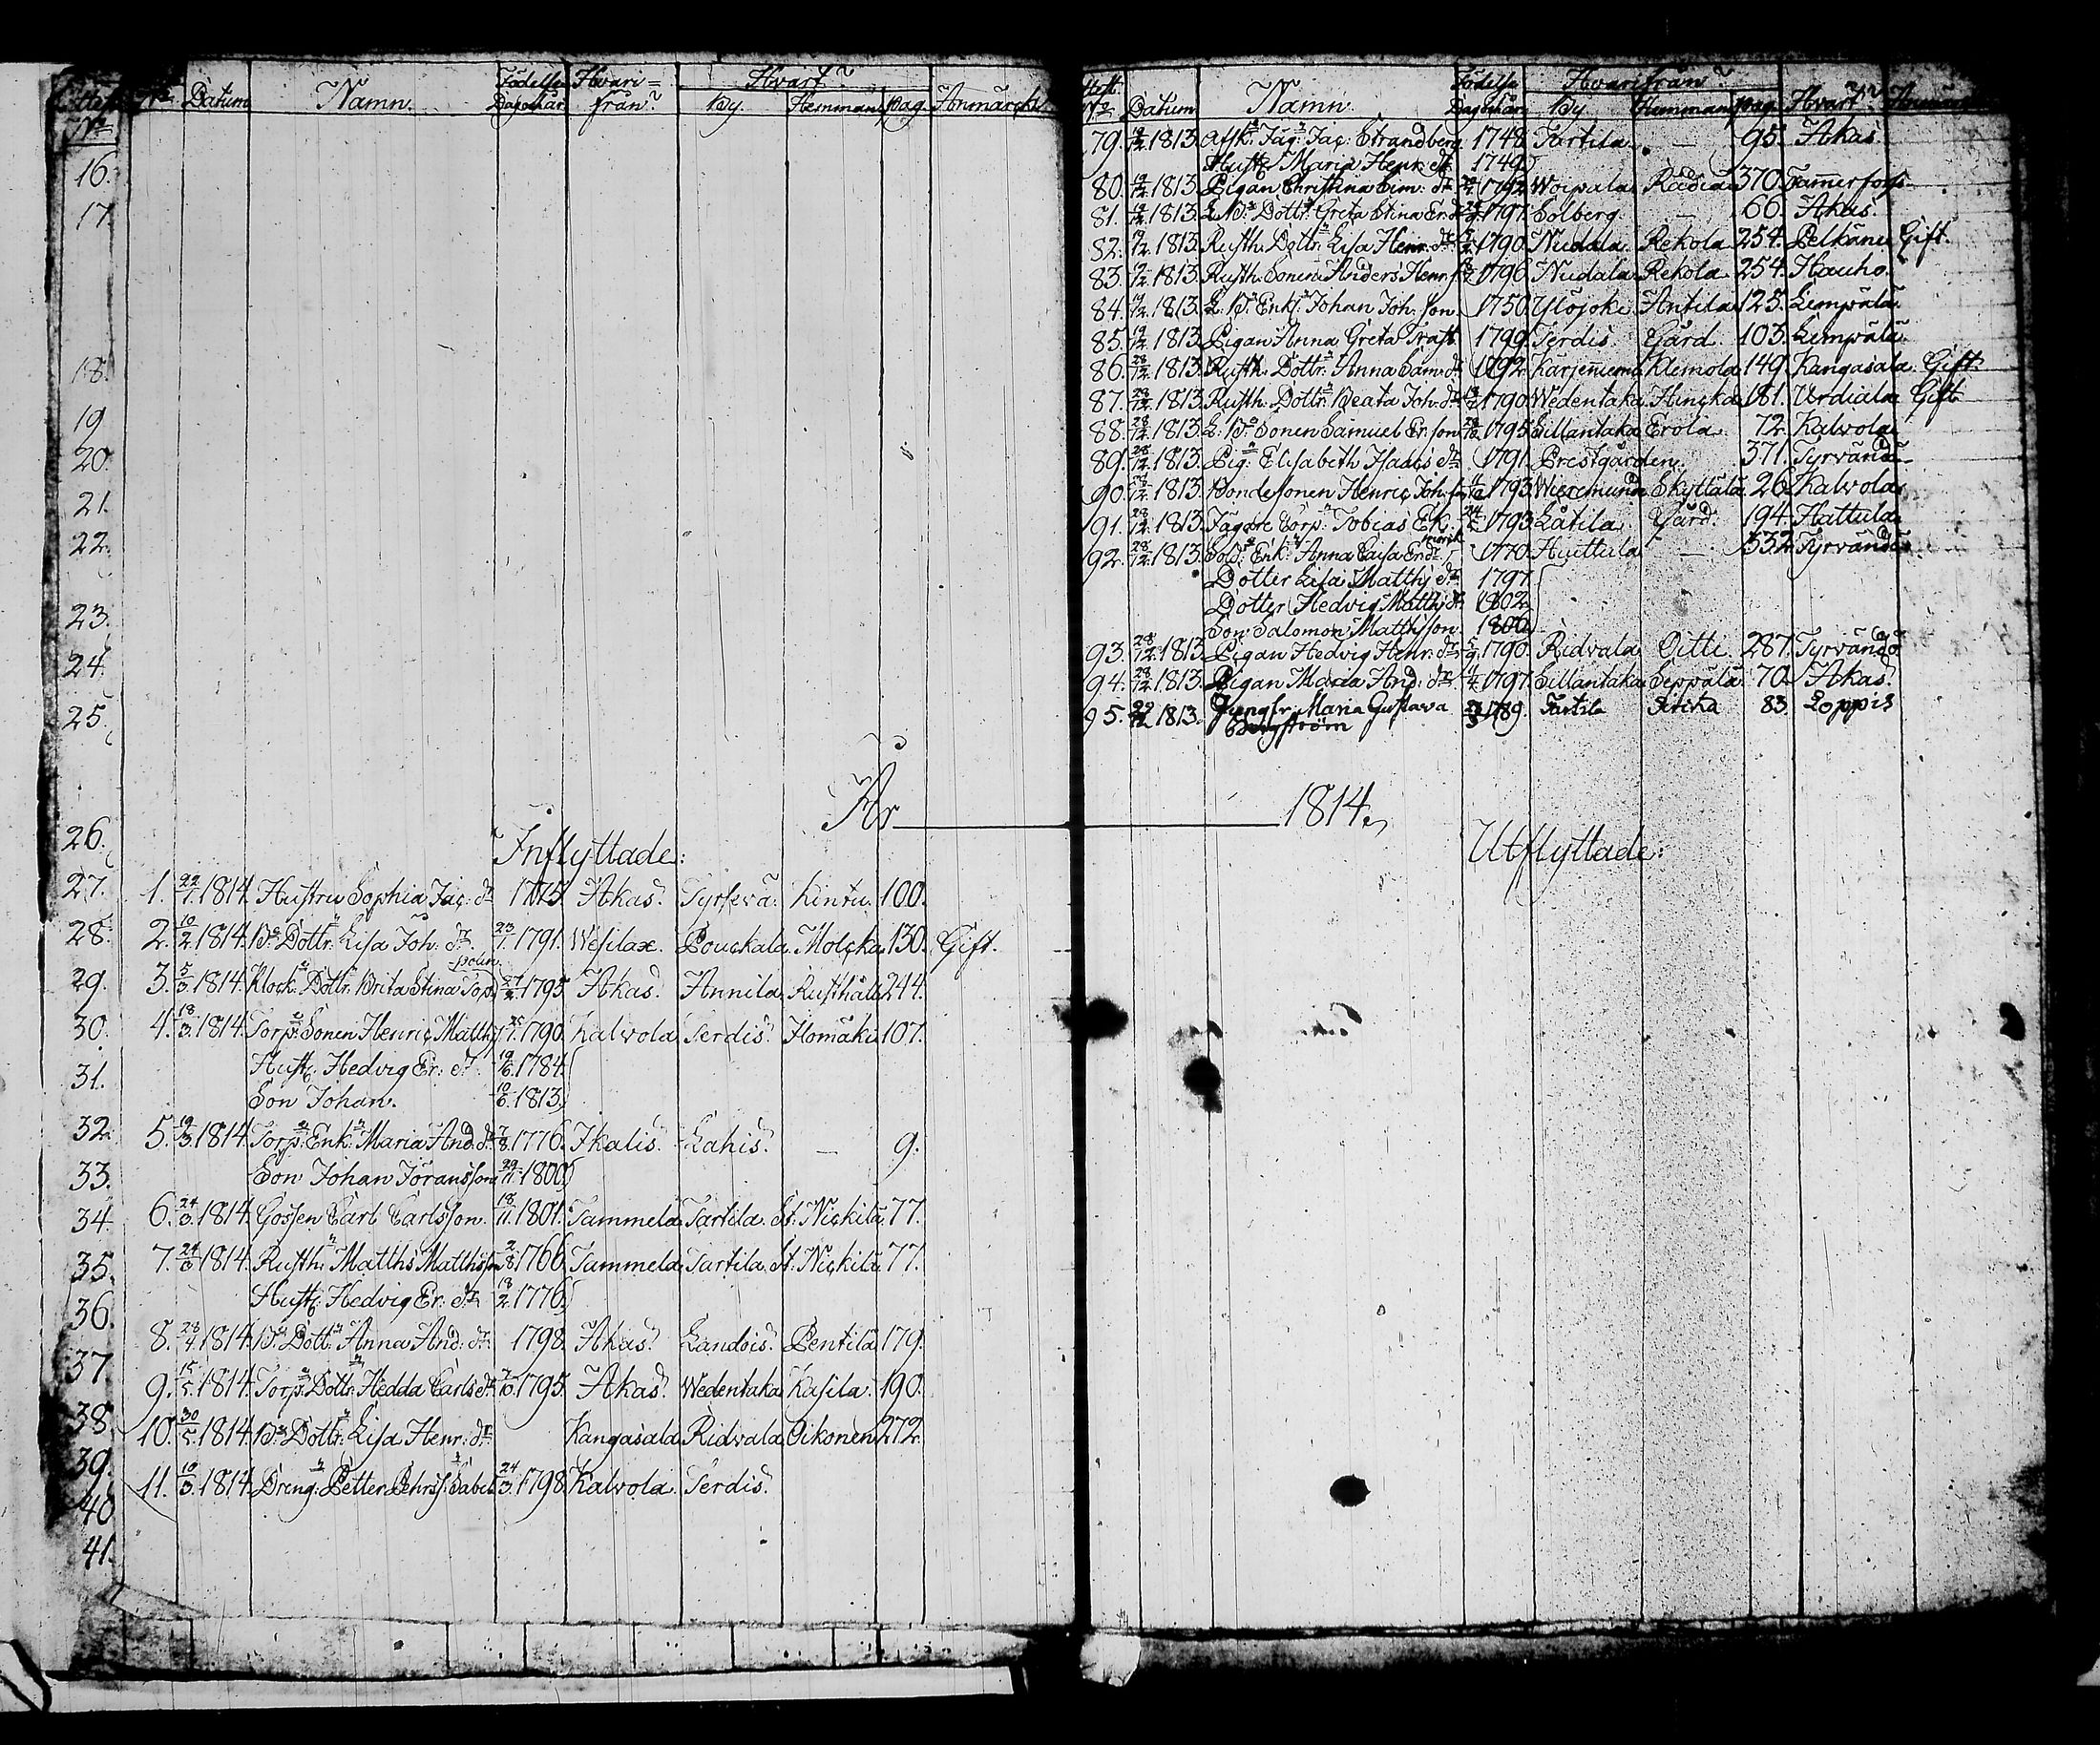 Attest N:o Datum Namn. Födelse Dag o. År Hvari-från? Hvart? By. Hemman. Pag. Anmärckn
N:o
16.
17.
18.
19
20.
21.
22.
23.
24.
25.
26.
Inflyttade:
27. 1. 22/1. 1814. Hustru Sophia Jac: dr 1775. Akas. Tyrlevä. Kintu. 100.
28. 2. 10/2. 1814. B:n Dottr. Lisa Joh: dr 23/1. 1791. Wesilax. Pouckala. Molcka. 130. Gift.
29. 3. 5/3. 1814. Klock: Dottr. Brita Stina 27/2. 1795. Akas. Annila. Rusthåll. 244.
30. 4. 18/3. 1814. Torp: Sonen Henric Matths 1790. Kalvola. Terdis. Homäki. 107.
31. Hust: Hedvig Er: dr 19/6. 1784.
Son Johan. 10/6. 1813.
32. 5. 19/3. 1814. Torp: Enk: Maria And: dr 7/8. 1776. Ikalis. Lahis. — 9.
33. Son Johan Jöransson 29/11. 1800.
34. 6. 24/3. 1814. Gossen Carl Carlsson. 18/11. 1801. Tammela. Tartila. St: Nickilä. 77.
35. 7. 24/3. 1814. Rusth: Matths Matthsson 2/8. 1766. Tammela. Tartila. St. Nickilä. 77.
36. Hust: Hedvig Er: dr 18/2. 1776.
8. 28/4. 1814. B:n Dott: Anna And: dr. 1798. Akas. Landois. Pentilä. 179.
37 9. 15/5. 1814. Torp: Dottr: Hedda Carls dr 1795. Akas. Wedentaka Kasila. 190.
38. 10. 30/5. 1814. B:n Dottr: Lisa Henr: dr. Kangasala. Ridvala. Oikonen. 272.
39. 11. 10/3. 1814. Dreng: Petter Pehrss: Sabel 24/3. 1798. Kalvola. Terdis.
40
41.
Attest. N:o Datum Namn. Födelse Dag o. År Hvarifrån? By. Hemman. Pag. Hvart?
79. 19/12. 1813. Afsk: Jäg: Jac: Strandberg. 1748. Tartila. — 95. Akas.
Hustr. Maria Henr: dr 1749.
80. 19/12. 1813. Pigan Christina Sim: dr 1792. Woipala. Rådia. 370. Tammerfors.
81. 19/12. 1813. L. B:n Dottr: Greta Stina Er: dr 1797. Solberg. — 66. Akas.
82. 19/12. 1813. Rusth: Dottr: Lisa Henr: dr 1790. Nudala. Rekola. 254. Pelkäne. Gift.
83. 19/12. 1813. Rusth: Sonen Anders Henr: s. 1796. Nudala. Rekola. 254. Hauho.
84. 19/12. 1813. L: B:n Enkl: Johan Joh: son. 1750. Ylöjoki. Antila. 125. Lempälä.
85. 19/12. 1813. Pigan Anna Greta Trast. 1799. Terdis. Gård. 103. Lempälä.
86. 28/12. 1813. Rusth: Dottr: Anna Sam: dr 1792. Karjenniemi. Klemola. 149. Kangasala. Gift.
87. 28/12. 1813. Rusth: Dottr: Beata Joh: dr 1790. Wedentaka. Hincka. 181. Urdiala. Gift
88. 28/12. 1813. L: B:n Sonen Samuel Er: son 1795. Sillantaka. Erola. 72. Kalvola.
89. 28/12. 1813. Pig: Elisabeth Isaacs dr. 1791. Prestgården. 371. Tyrvändä.
90. 28/12. 1813. Bondesonen Henric Joh: s. 1793. Skyttälä. 26. Kalvola.
91. 28/12. 1813. Jägare Corp: Tobias Ek. 1793. Låtila. Gård. 194. Hattula.
92. 28/12. 1813. Sold: Enk: Anna Caisa Er: dr 1770. Huittula. — 332. Tyrvändä.
Dotter Lisa Matths dr. 1797.
Dotter Hedvig Matths dr. 1802.
Son Salomon Mattsson. 1806.
93. 28/12. 1813. Pigan Hedvig Henr: dr. 1790. Ridvala. Oitti. 287. Tyrvändä.
94. 28/12. 1813. Pigan Maria And: dr 1797. Sillantaka. Seppälä. 70. Akas.
95. 1813. Jungfr. Maria Gustava 1789. Tartila 83. Loppis
Bergström
År 1814.
Utflyttade: